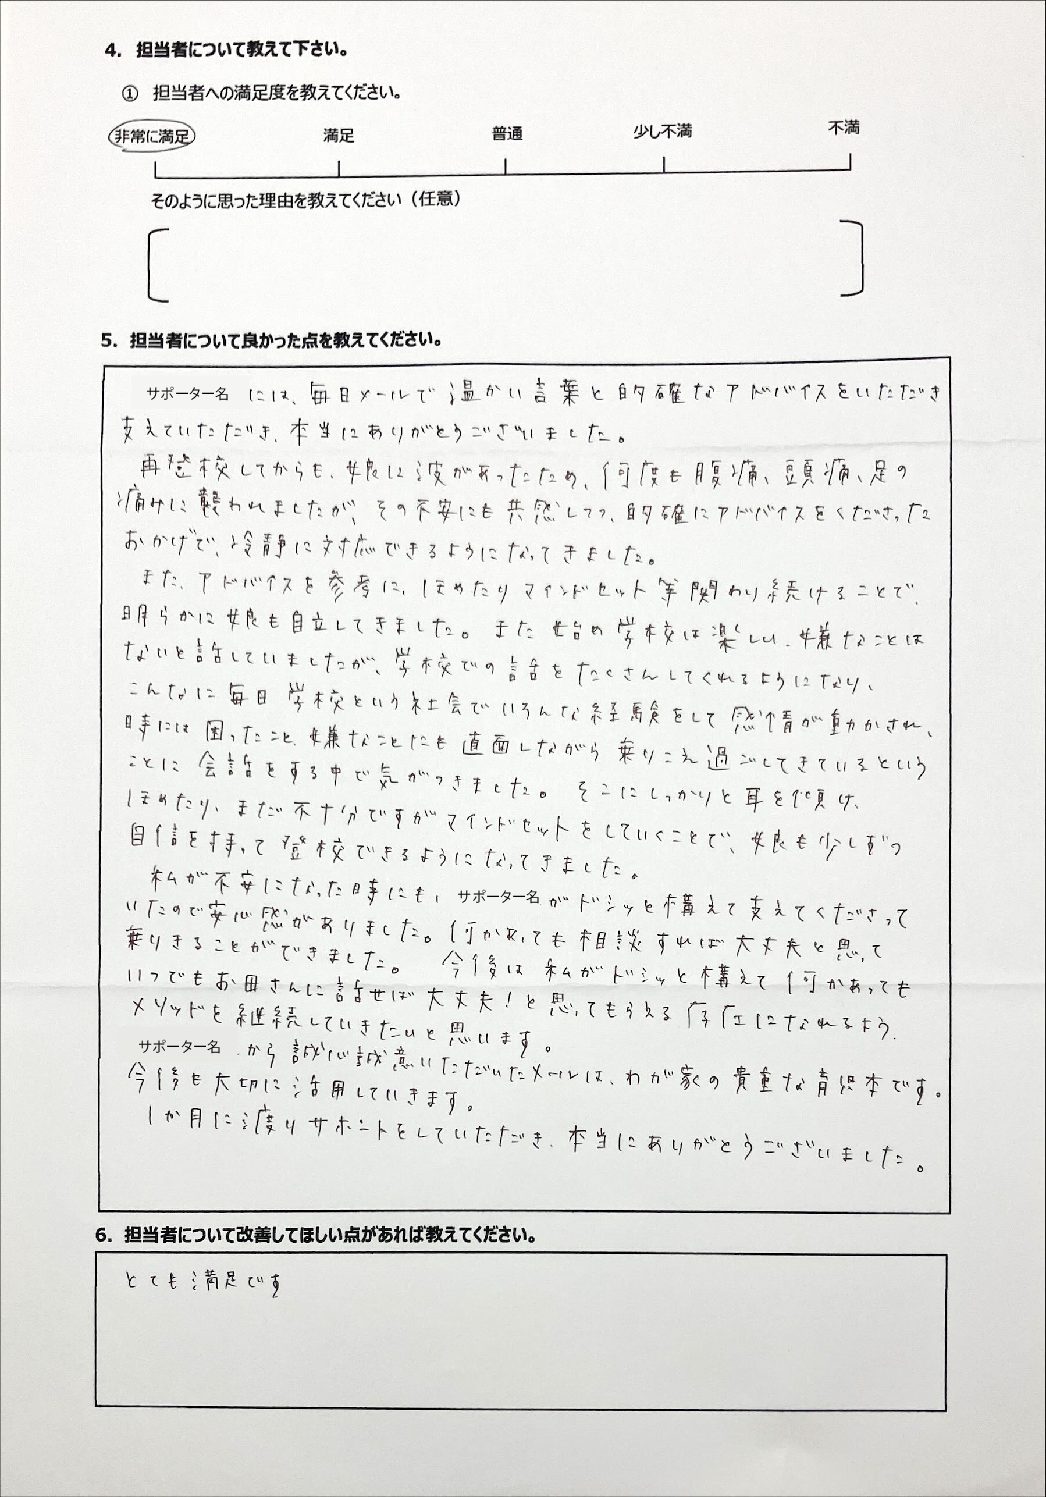 4. 担当者について教えて下さい。
① 担当者への満足度を教えてください。
非常に満足 満足 普通 少し不満 不満
そのように思った理由を教えてください（任意）
5. 担当者について良かった点を教えてください。
サポーター名 には、毎日メールで温かい言葉と的確なアドバイスをいただき
支えていただき、本当にありがとうございました。
再登校してからも、娘に波があったため、何度も腹痛、頭痛、足の
痛みに襲われましたが、その不安にも共感しつつ、的確にアドバイスをくださった
おかげで、冷静に対応できるようになってきました。
また、アドバイスを参考に、ほめたりマインドセット等関わり続けることで、
明らかに娘も自立してきました。また始めは学校は楽しい、嫌なことは
ないと話していましたが、学校での話をたくさんしてくれるようになり、
こんなに毎日学校という社会でいろんな経験をして感情が動かされ、
時には困ったこと、嫌なことにも直面しながら乗りこえ過ごしてきているという
ことに会話をする中で気がつきました。そこにしっかりと耳を傾け、
ほめたり、まだ不十分ですがマインドセットをしていくことで、娘も少しずつ
自信を持って登校できるようになってきました。
私が不安になった時にも、サポーター名がドシッと構えて支えてくださって
いたので安心感がありました。何かあっても相談すれば大丈夫と思って
乗りきることができました。 今後は私がドシッと構えて何かあっても
いつでもお母さんに話せば大丈夫！と思ってもらえる存在になれるよう、
メソッドを継続していきたいと思います。
サポーター名 から誠心誠意いただいたメールは、わが家の貴重な育児本です。
今後も大切に活用していきます。
1か月に渡りサポートをしていただき、本当にありがとうございました。
6. 担当者について改善してほしい点があれば教えてください。
とても満足です